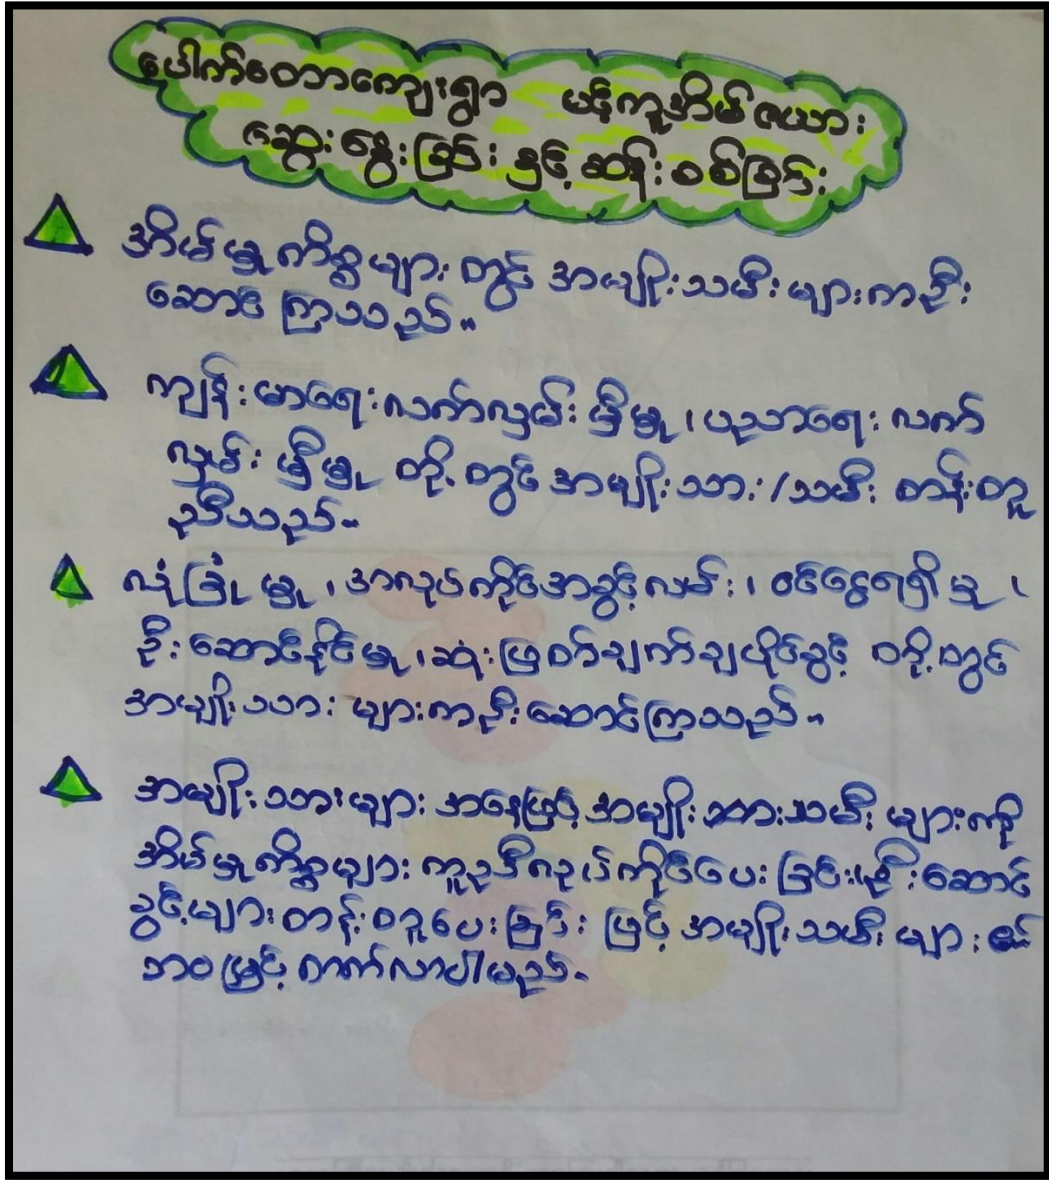 ပေါက်တောကျေးရွာ ပင့်ကူအိမ်ဇယား
ဆွေးနွေးခြင်း နှင့် ဆန်းစစ်ခြင်း
အိမ်မှုကိစ္စများ တွင် အမျိုးသမီးများကဦး
ဆောင် ကြသည်။
ကျန်းမာရေးလက်လှမ်း မှီမှု ၊ ပညာရေး လက်
လှမ်း မှီမှု တို့ တွင် အမျိုးသား/သမီး တန်းတူ
ညီသည်။
လုံခြုံ မှု ၊ အလုပ်ကိုင်အခွင့်လမ်း ၊ ဝင်ငွေရရှိ မှု ၊
ဦးဆောင်နိုင်မှု ၊ ဆုံးဖြတ်ချက်ချပိုင်ခွင့် တို့တွင်
အမျိုးသား များကဦးဆောင်ကြသည်။
အမျိုးသားများ အနေဖြင့် အမျိုးသားသမီး များကို
အိမ်မှုကိစ္စများ ကူညီလုပ်ကိုင်ပေး ခြင်း၊ ဦးဆောင်
ခွင့်များ တန်းတူပေးခြင်း ဖြင့် အမျိုးသမီး များ ၏
ဘဝ မြှင့် တက်လာပါမည်။